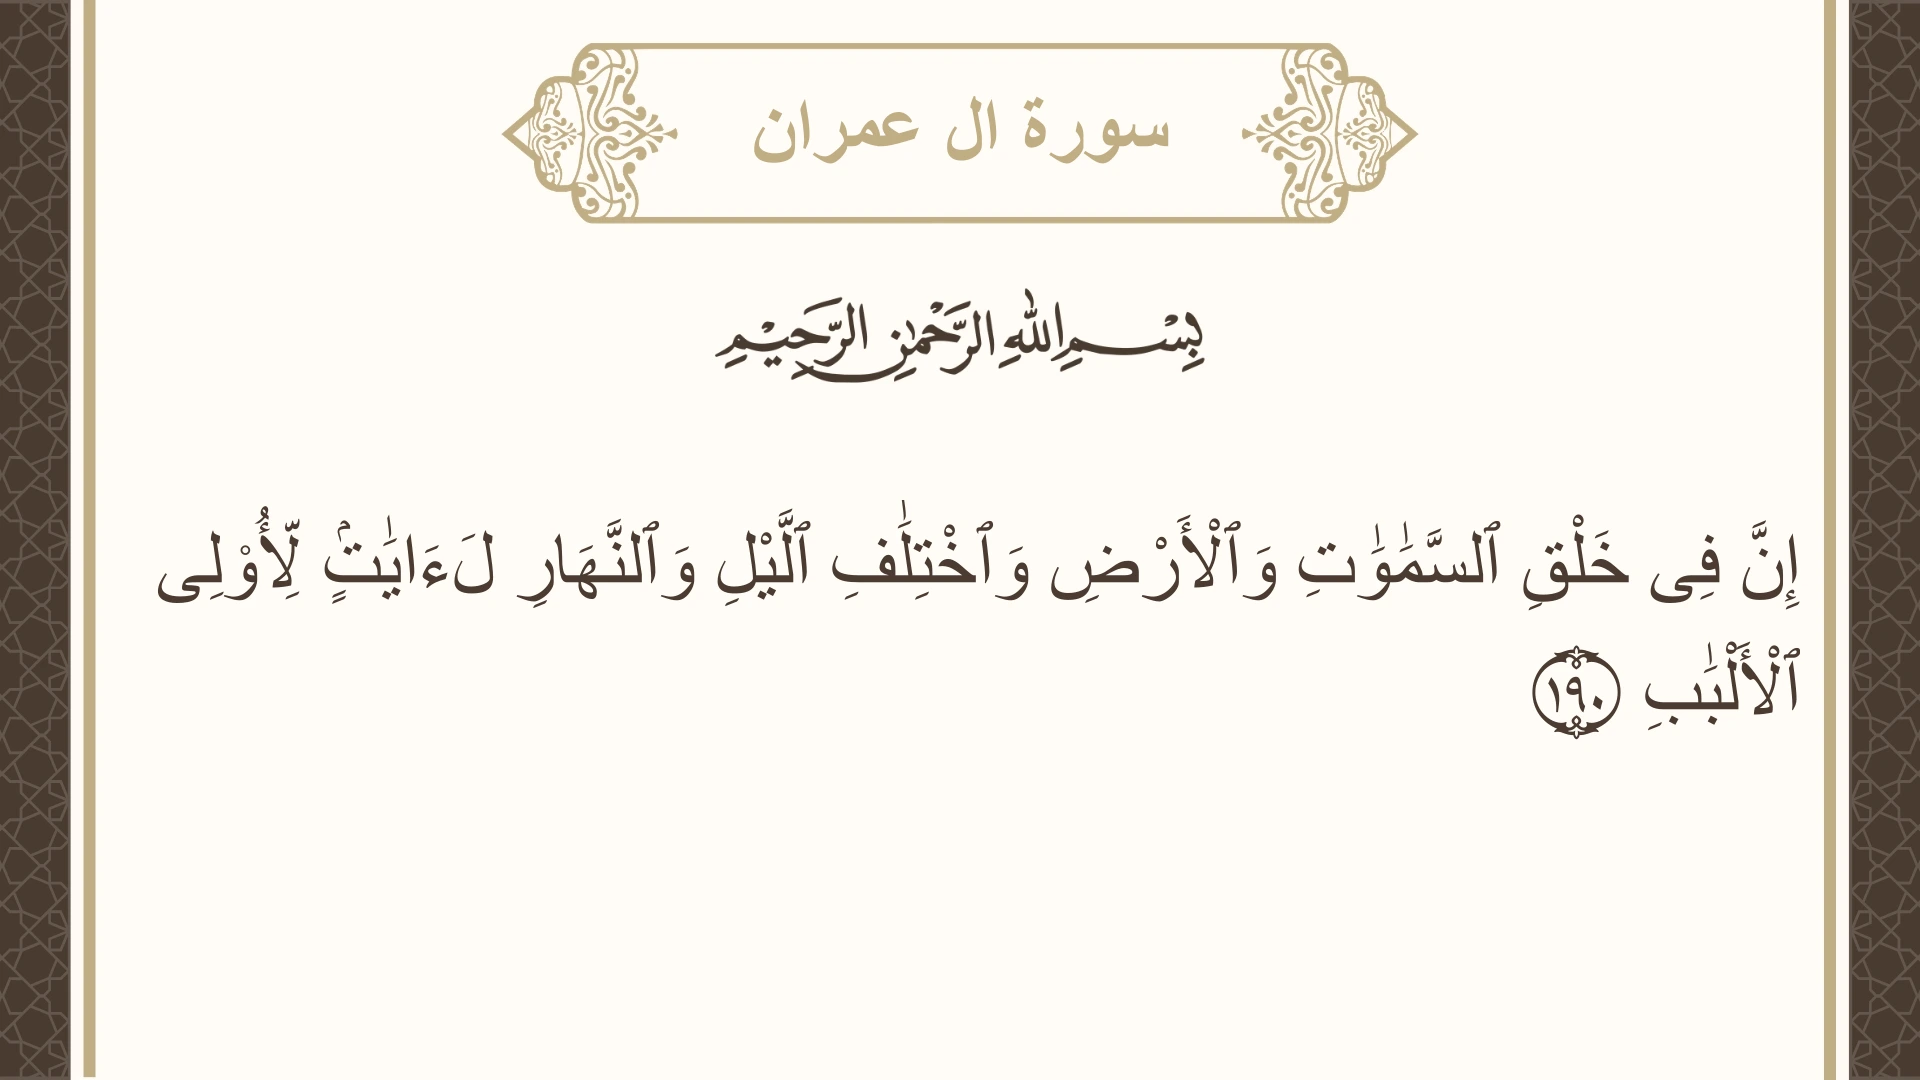 سورة ال عمران
بِسْمِ اللهِ الرَّحْمٰنِ الرَّحِيْمِ
إِنَّ فِى خَلْقِ ٱلسَّمَـٰوَٰتِ وَٱلْأَرْضِ وَٱخْتِلَـٰفِ ٱلَّيْلِ وَٱلنَّهَارِ لَـَٔايَـٰتٍۢ لِّأُو۟لِى
ٱلْأَلْبَـٰبِ ١٩٠